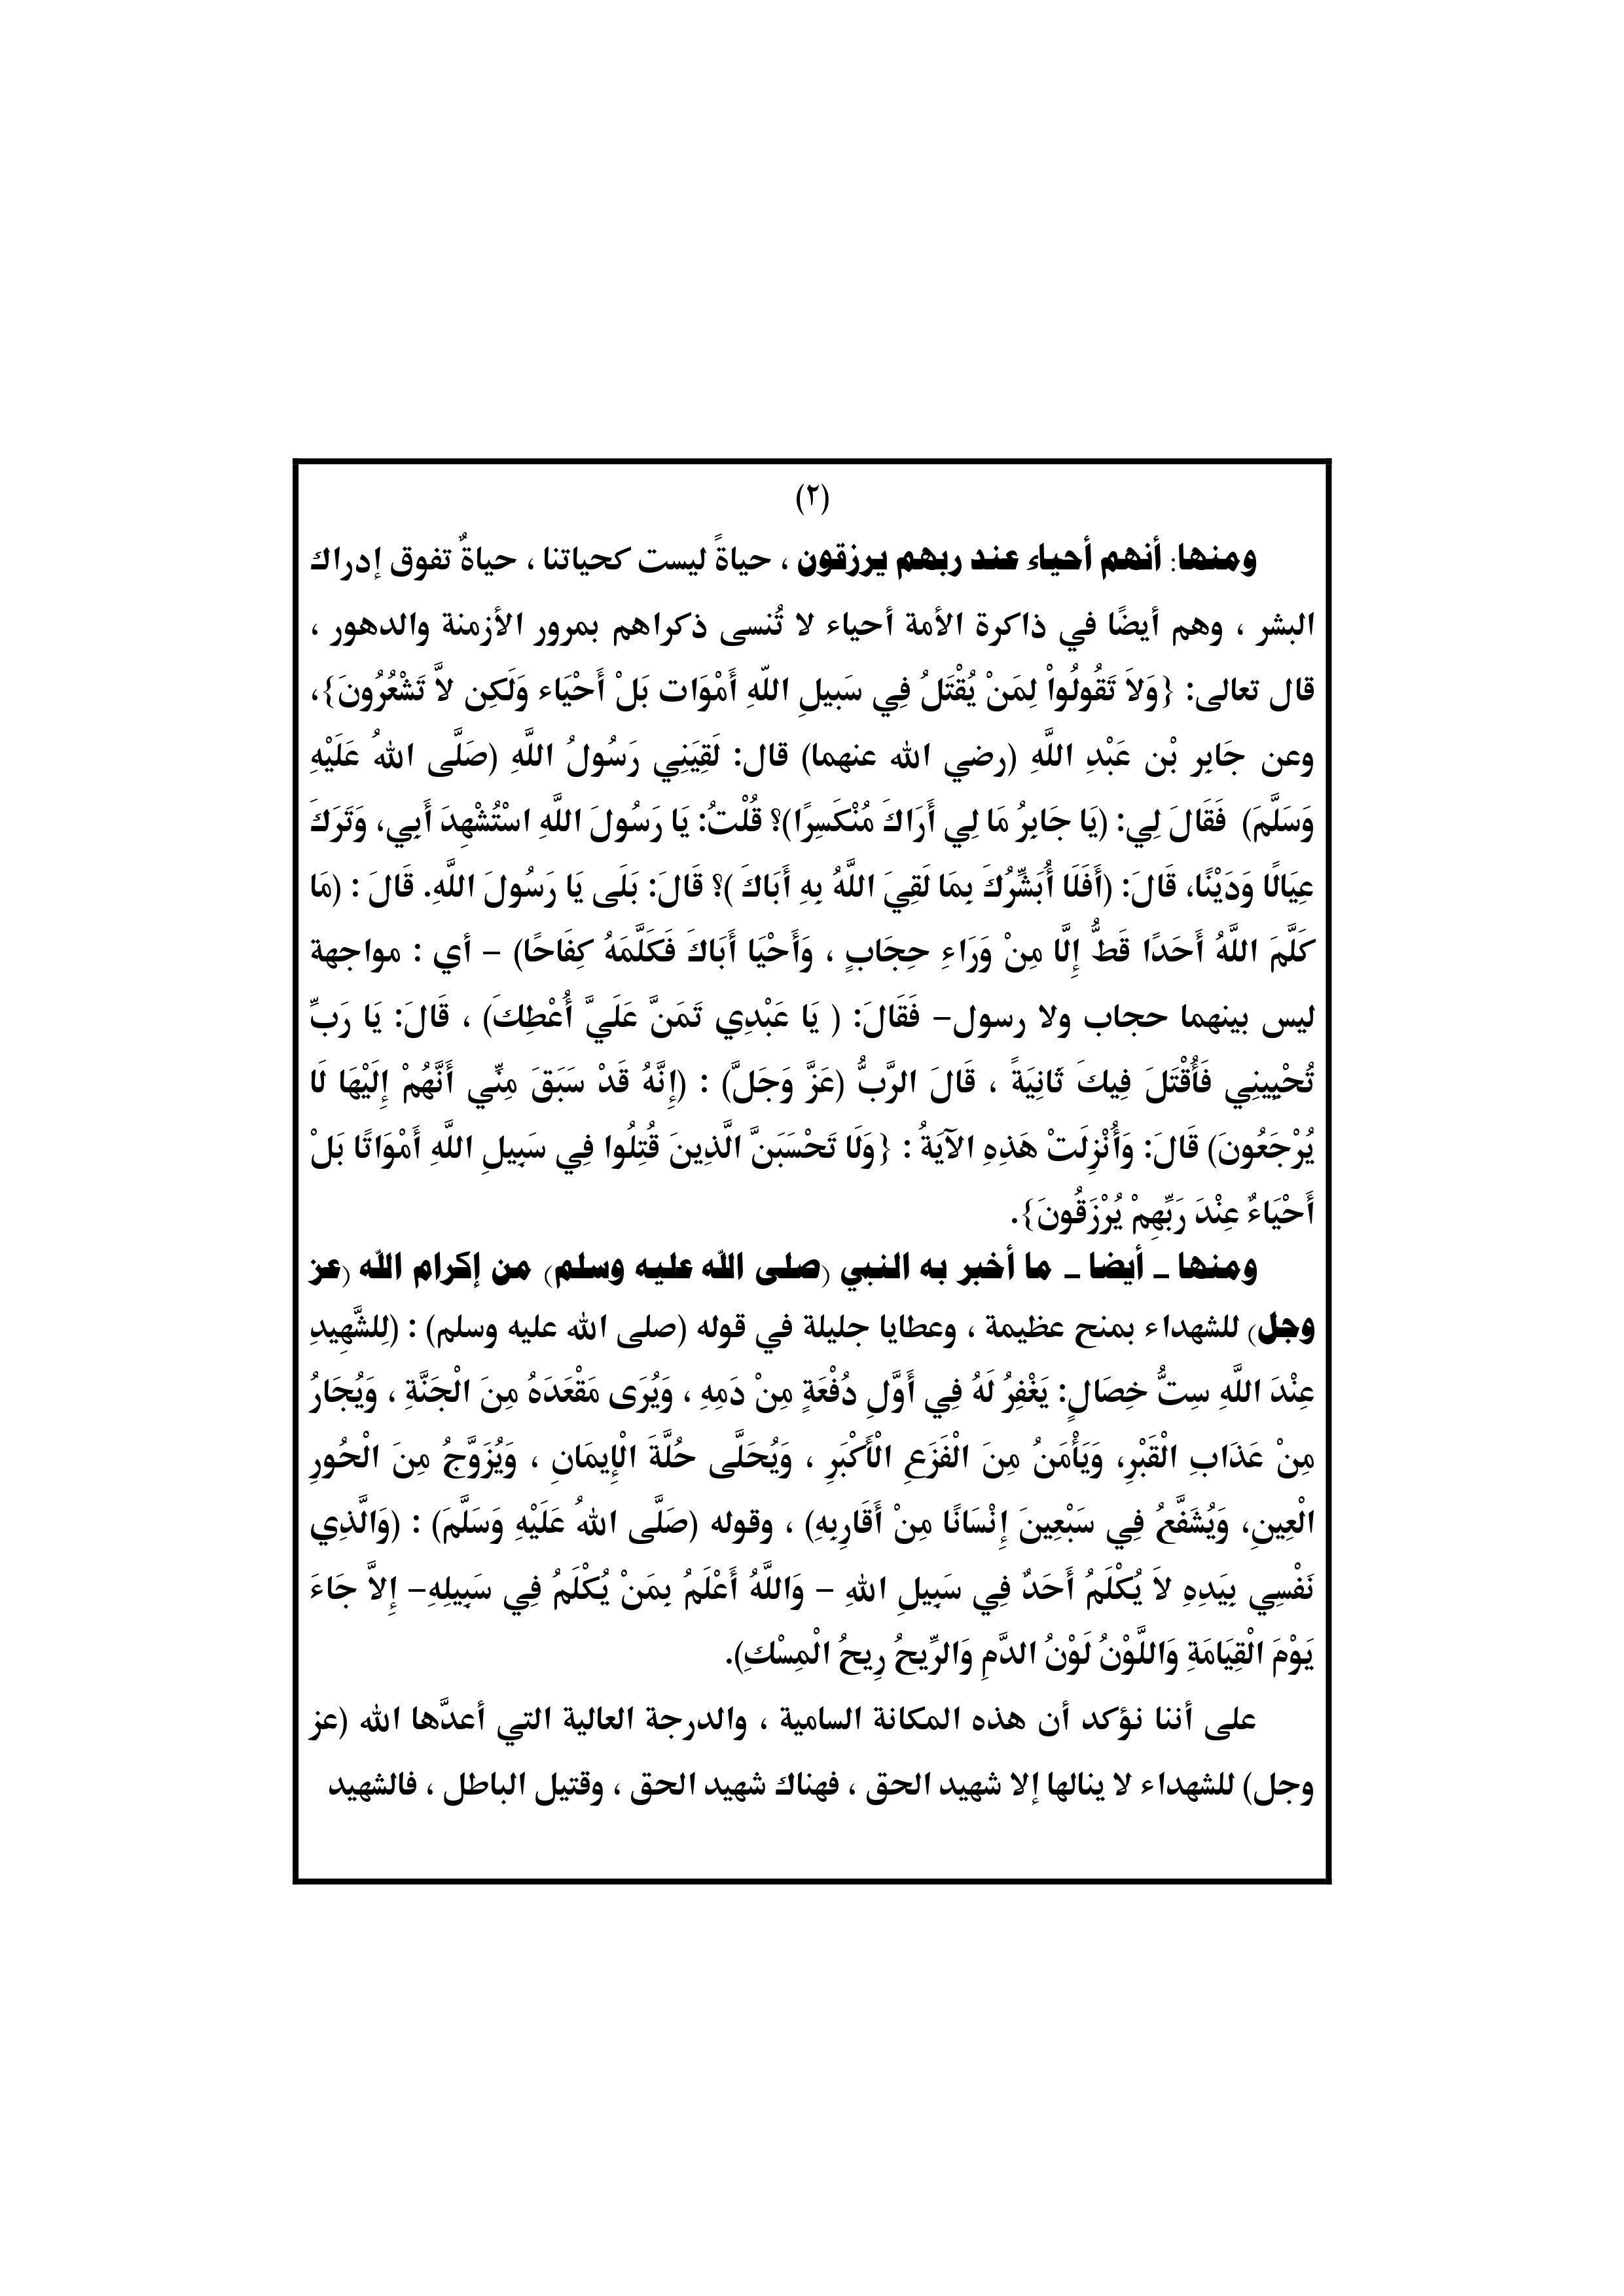 (٢)
ومنها: أنهم أحياء عند ربهم يرزقون ، حياةً ليست كحياتنا ، حياةٌ تفوق إدراك
البشر ، وهم أيضًا في ذاكرة الأمة أحياء لا تُنسى ذكراهم بمرور الأزمنة والدهور ،
قال تعالى: {وَلاَ تَقُولُواْ لِمَنْ يُقْتَلُ فِي سَبيلِ اللّهِ أَمْوَات بَلْ أَحْيَاء وَلَكِن لاَّ تَشْعُرُونَ}،
وعن جَابِر بْن عَبْدِ اللَّهِ (رضي الله عنهما) قال: لَقِيَنِي رَسُولُ اللَّهِ (صَلَّى اللهُ عَلَيْهِ
وَسَلَّمَ) فَقَالَ لِي: (يَا جَابِرُ مَا لِي أَرَاكَ مُنْكَسِرًا)؟ قُلْتُ: يَا رَسُولَ اللَّهِ اسْتُشْهِدَ أَبِي، وَتَرَكَ
عِيَالًا وَدَيْنًا، قَالَ: (أَفَلَا أُبَشِّرُكَ بِمَا لَقِيَ اللَّهُ بِهِ أَبَاكَ )؟ قَالَ: بَلَى يَا رَسُولَ اللَّهِ. قَالَ : (مَا
كَلَّمَ اللَّهُ أَحَدًا قَطُّ إِلَّا مِنْ وَرَاءِ حِجَابٍ ، وَأَحْيَا أَبَاكَ فَكَلَّمَهُ كِفَاحًا) – أي : مواجهة
ليس بينهما حجاب ولا رسول– فَقَالَ: ( يَا عَبْدِي تَمَنَّ عَلَيَّ أُعْطِكَ) ، قَالَ: يَا رَبِّ
تُحْيِينِي فَأُقْتَلَ فِيكَ ثَانِيَةً ، قَالَ الرَّبُّ (عَزَّ وَجَلَّ) : (إِنَّهُ قَدْ سَبَقَ مِنِّي أَنَّهُمْ إِلَيْهَا لَا
يُرْجَعُونَ) قَالَ: وَأُنْزِلَتْ هَذِهِ الآيَةُ : {وَلَا تَحْسَبَنَّ الَّذِينَ قُتِلُوا فِي سَبِيلِ اللَّهِ أَمْوَاتًا بَلْ
أَحْيَاءٌ عِنْدَ رَبِّهِمْ يُرْزَقُونَ}.
ومنها ـ أيضا ـ ما أخبر به النبي (صلى الله عليه وسلم) من إكرام الله (عز
وجل) للشهداء بمنح عظيمة ، وعطايا جليلة في قوله (صلى الله عليه وسلم) : (لِلشَّهِيدِ
عِنْدَ اللَّهِ سِتُّ خِصَالٍ: يَغْفِرُ لَهُ فِي أَوَّلِ دُفْعَةٍ مِنْ دَمِهِ ، وَيُرَى مَقْعَدَهُ مِنَ الْجَنَّةِ ، وَيُجَارُ
مِنْ عَذَابِ الْقَبْرِ، وَيَأْمَنُ مِنَ الْفَزَعِ الْأَكْبَرِ ، وَيُحَلَّى حُلَّةَ الْإِيمَانِ ، وَيُزَوَّجُ مِنَ الْحُورِ
الْعِينِ، وَيُشَفَّعُ فِي سَبْعِينَ إِنْسَانًا مِنْ أَقَارِبِهِ) ، وقوله (صَلَّى اللهُ عَلَيْهِ وَسَلَّمَ) : (وَالَّذِي
نَفْسِي بِيَدِهِ لاَ يُكْلَمُ أَحَدٌ فِي سَبِيلِ اللهِ – وَاللَّهُ أَعْلَمُ بِمَنْ يُكْلَمُ فِي سَبِيلِهِ– إِلاَّ جَاءَ
يَوْمَ الْقِيَامَةِ وَاللَّوْنُ لَوْنُ الدَّمِ وَالرِّيحُ رِيحُ الْمِسْكِ).
على أننا نؤكد أن هذه المكانة السامية ، والدرجة العالية التي أعدَّها الله (عز
وجل) للشهداء لا ينالها إلا شهيد الحق ، فهناك شهيد الحق ، وقتيل الباطل ، فالشهيد